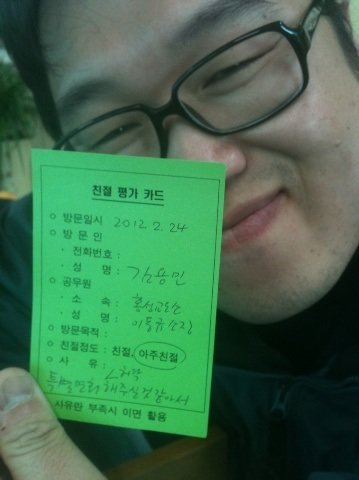 친절 평가 카드
방문일시 2012. 2. 24
방문인
· 전화번호 :
· 성 명 : 김용민
공무원
· 소 속 : 홍성교도소
· 성 명 : 이동규 소장
방문목적 :
친절정도 : 친절, 아주친절
사 유 : 허락
특별면회 해주실 것 같아서
사유란 부족시 이면 활용